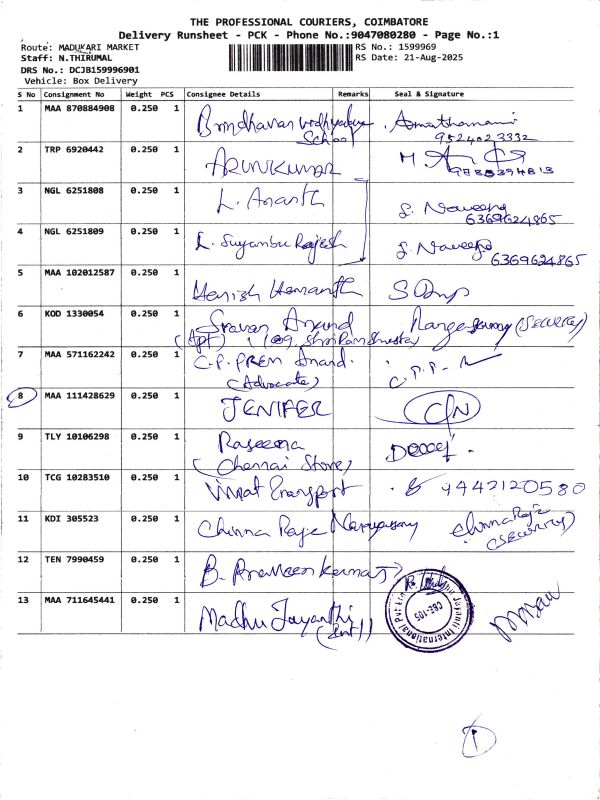 THE PROFESSIONAL COURIERS, COIMBATORE
Delivery Runsheet - PCK - Phone No.:9047080280 - Page No.:1
Route: MADUKARI MARKET RS No.: 1599969
Staff: N.THIRUMAL RS Date: 21-Aug-2025
DRS No.: DCJB159996901
Vehicle: Box Delivery
S No Consignment No Weight PCS Consignee Details Remarks Seal & Signature
1 MAA 870884908 0.250 1 Brindhavan Vidhyalaya
School 9524023332
2 TRP 6920442 0.250 1 ARUNKUMAR
3 NGL 6251808 0.250 1 L. Ananth S. Naveena
6369624865
4 NGL 6251809 0.250 1 L. Suyambu Rajesh S. Naveena
6369624865
5 MAA 102012587 0.250 1 Harish Hemanth
6 KOD 1330054 0.250 1 Sravan Anand Rangasamy (SECURITY)
(Apt)
7 MAA 571162242 0.250 1 C.P. PREM Anand. C.P.P.
(Advocate)
8 MAA 111428629 0.250 1 JENIFER
9 TLY 10106298 0.250 1 Raseena
(Chennai Store)
10 TCG 10283510 0.250 1 Vinat Transport 9442120580
11 KDI 305523 0.250 1 Chinna Raje Narayasamy Chinna Raje
(SECURITY)
12 TEN 7990459 0.250 1 B. Praveen Kumar
13 MAA 711645441 0.250 1 Madhu Jayanthi
Jayanti International Pvt Ltd
CBE-105
1